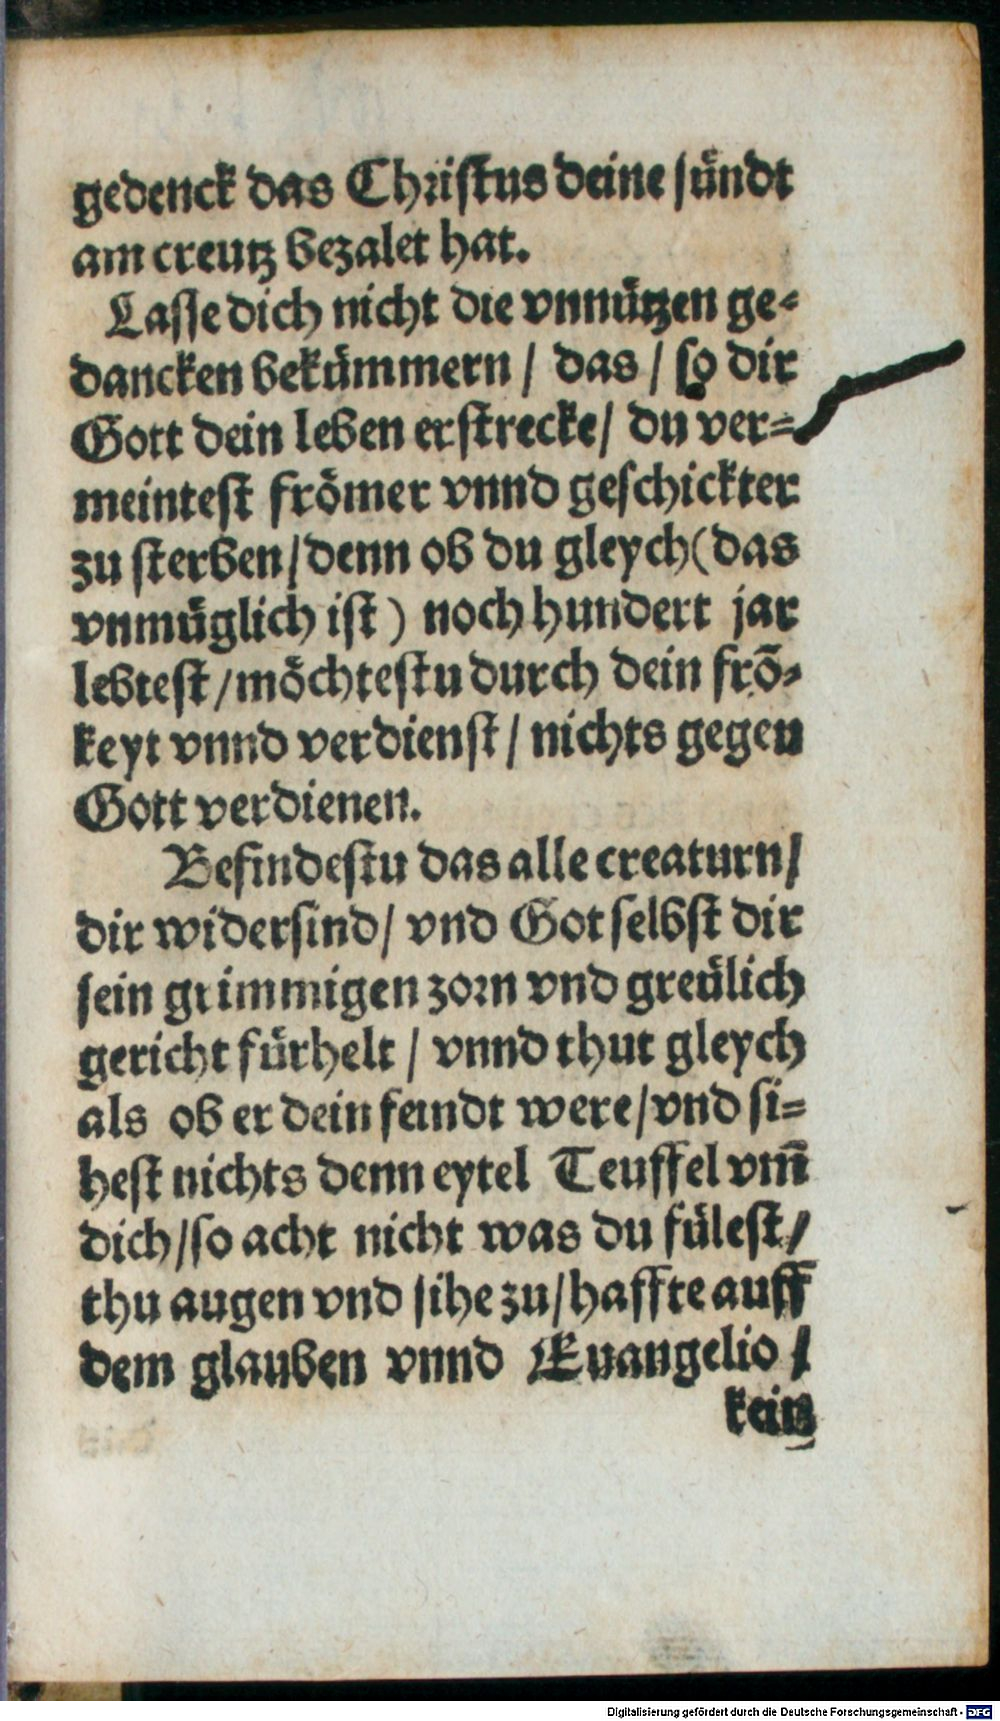 gedenck das Chriſtus deine ſündt
am creutz bezalet hat.
Laſſe dich nicht die vnnützen ge⸗
dancken bekümmern / das / ſo dir
Gott dein leben erſtrecke / du ver⸗
meinteſt frömer vnnd geſchickter
zu ſterben / denn ob du gleych (das
vnmüglich iſt) noch hundert jar
lebteſt / möchteſtu durch dein frȫ⸗
keyt vnnd verdienſt / nichts gegen
Gott verdienen.
Befindeſtu das alle creaturn /
dir widerſind / vnd Got ſelbſt dir
ſein grimmigen zorn vnd greülich
gericht fürhelt / vnnd thut gleych
als ob er dein feindt were / vnd ſi⸗
heſt nichts denn eytel Teuffel vm̄
dich / ſo acht nicht was du füleſt /
thu augen vnd ſihe zu / haffte auff
dem glauben vnnd Euangelio /
kein
Digitalisierung gefördert durch die Deutsche Forschungsgemeinschaft - DFG